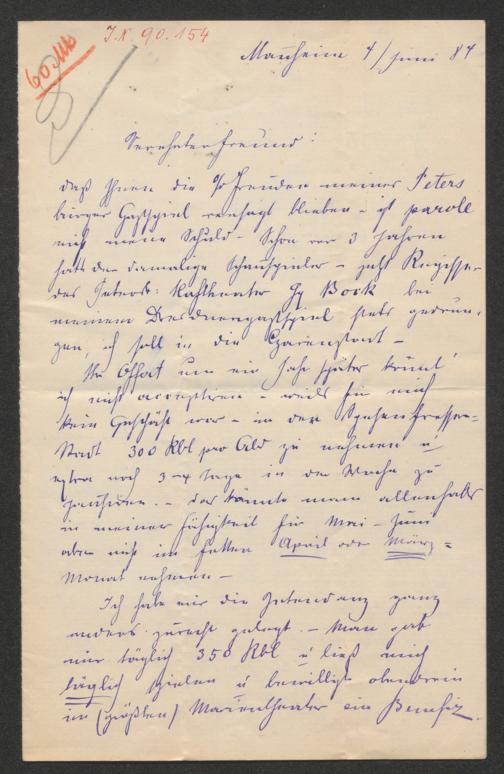 60 Mk
I.N. 90.154
Mannheim 4/Juni 84
Verehrter Freund:
daß Ihnen die % Freuden meines Peters
burger Gastspiel versagt blieben – ist parole
nicht meine Schuld – Schon vor 3 Jahren
hatte der damalige Schauspieler – jetzt Regisseur
des Petersb: Hoftheater Hr Bock bei
meinem Dresdnergastspiel stets gedrun-
gen, ich soll in die Czarenstadt –
Ihr Offert um ein Jahr später konnt'
ich nicht acceptiren – weils für mich
kein Geschäft war – in der
Stadt 300 Rbl pro Abd zu nehmen u
extra noch 3–4 Tage in der Woche zu
pausiren. – das könnte man allenfalls
in meiner Fähigkeit für Mai – Juni
aber nicht im fetten April oder März-
Monat nehmen –
Ich habe mir die Intendanz ganz
anders zurecht gelegt. – Man gab
mir täglich 350 Rbl u ließ mich
täglich spielen u bewilligte obendrein
im (größten) Marientheater ein Benefiz.